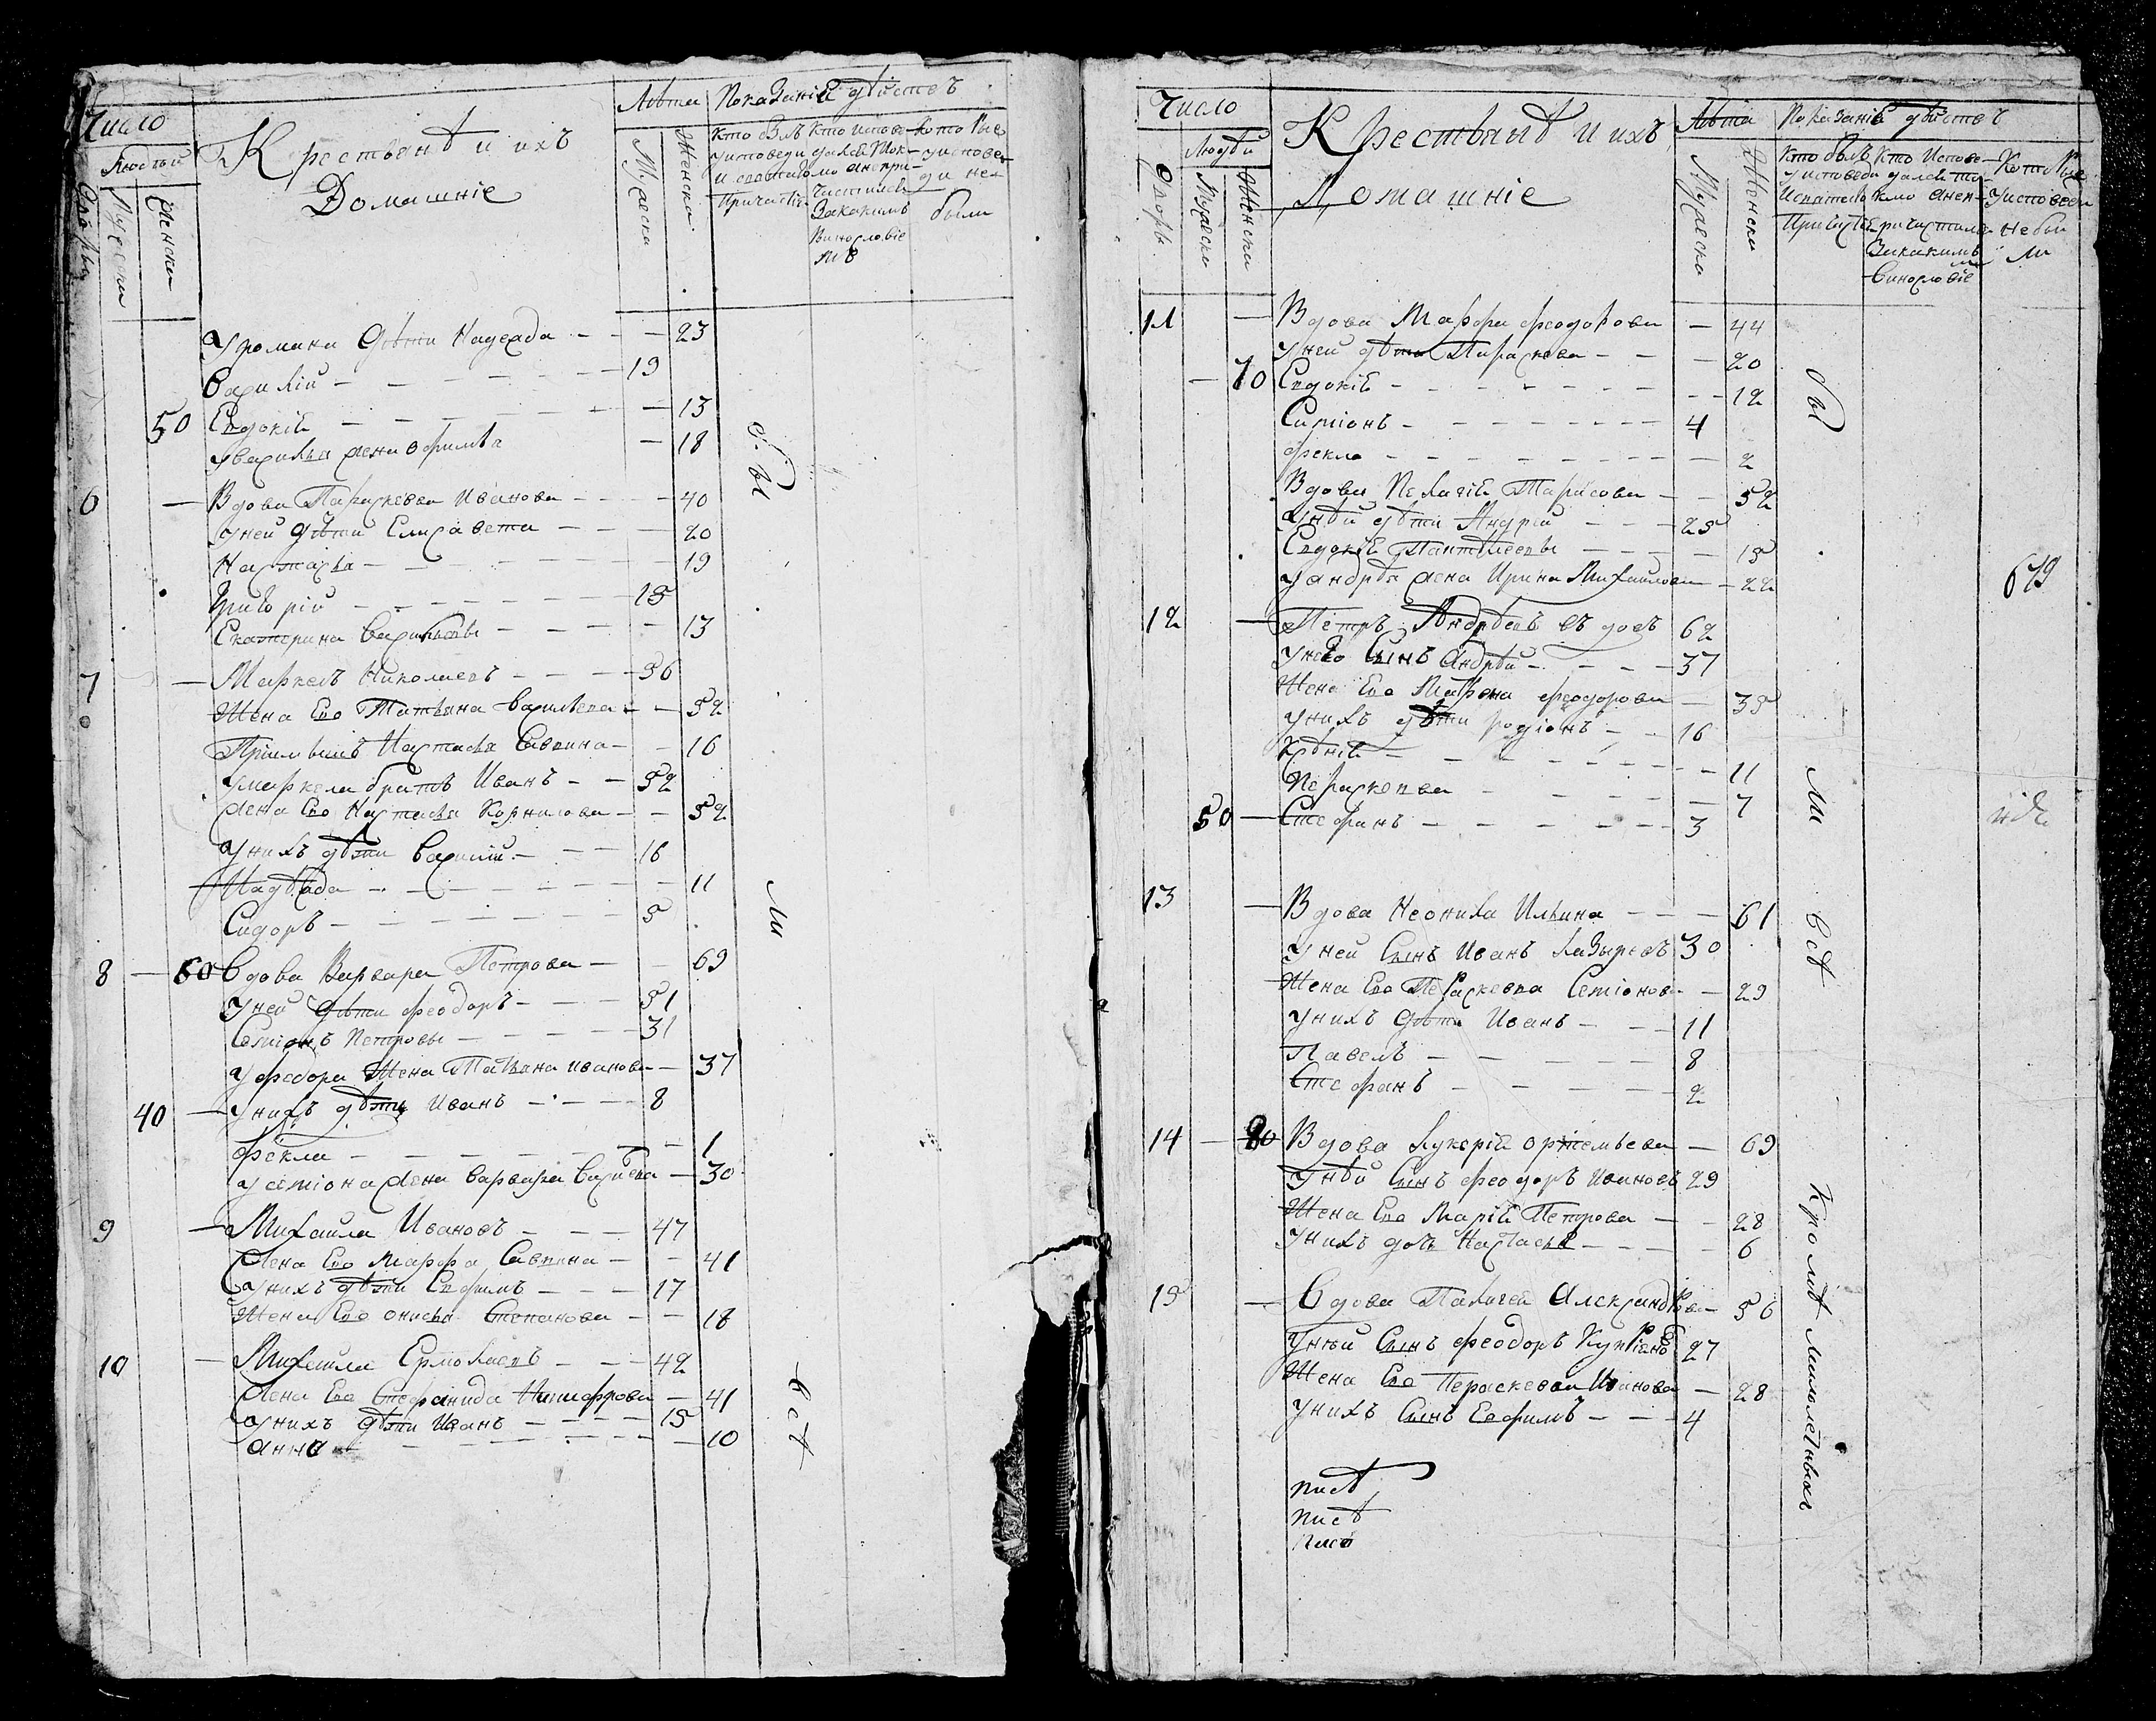 Число
Людѣй
Дворы
Мужески
Женски
Крестьянѣ и ихъ
Домашніе
Лѣта
Мужески
Женски
Показаніе дѣйствъ
Кто былъ уисповеди и святаго Причастіе
Кто исповедался токмо а непричастился Закакимъ Винословіемъ
Которые уисповеди не были
Уромана дѣти Надежда - - - 23
Василій - - - 19
50 Евдокіе - - - 13
Уварилья жена Офимья - 18
6 — Вдова Параскевва Иванова - - - 40
Уней дѣти Елисавета - - - 20
Настасья - - - 19
Григорій - - - 15
Екатерина Васильевы - - - 13
7 — Маркелъ Николаевъ - - - 56
Жена Ево Татьяна Васильева - - 52
Пріимышъ Настасья Саввина - - 16
Умаркела братъ Иванъ - - 52
Жена Ево Настасья Корнилова - - 52
Унихъ дѣти Василій - - - 16
Надѣжда - - - 11
Сидоръ - - - 5
8 — 60 Вдова Варвара Петрова - - 69
Уней дѣти Феодоръ - - - 51
Семіонъ Петровы - - - 31
Уфедора Жена Татьяна Иванова - 37
40 — Унихъ дѣти Иванъ - - - 8
Фекла - - - 1
Усеміона жена Варвара Васильева - 30
9 — Михаила Ивановъ - - - 47
Жена Ево Марфа Саввина - - 41
Унихъ дѣти Ефимъ - - - 17
Жена Ево Онисья Степанова - - 18
10 — Михаила Ермолаевъ - - - 42
Жена Ево Стефанида Никифорова - 41
Унихъ дѣти Иванъ - - - 15
Анна - - - 10
бы
ли
всѣ
Число
Дворы
Людѣй
Мужески
Женски
Крестьянѣ и ихъ
Домашніе
Лѣта
Мужески
Женски
Показаніе дѣйствъ
Кто былъ уисповеди Исвятаго Причастіе
Кто Исповедался токмо анепричастился Закакимъ Винословіемъ
Которые Уисповеди не были
11 — Вдова Марфа Феодорова - 44
Уней дѣти Параскева - - - 20
— 70 Евдокіе - - - 12
Симіонъ - - - 4
Фекла - - - 2
Вдова Пелагіе Тарасова - - 52
Унѣй дѣти Андрей - - - 25
Евдокіе Пантилеевы - - - 15
Уандрѣя жена Ирина Михаилова - 22
12 — Петръ Андрѣевъ вдовъ 62
Унево Сынъ Андрѣй - - - 37
Жена Ево Марфа Феодорова - 35
Унихъ дѣти Родіонъ - - 16
Ксѣніе - - - 11
Пераскевва - - - 7
50 — Стефанъ - - - 3
13 — Вдова Неонила Ильина - - - 61
Уней Сынъ Иванъ Лазыревъ 30
Жена Ево Пераскевва Семіонова - 29
Унихъ дѣти Иванъ - - - 11
Павелъ - - - 8
Стефанъ - - - 2
14 — 80 Вдова Лукеріе Ортемьева - 69
Унѣй Сынъ Феодоръ Ивановъ 29
Жена Ево Маріе Петрова - - 28
Унихъ дочь Настасья - - - 6
15 — Вдова Палагея Александрова - 56
Унѣй Сынъ Феодоръ Купріяновъ 27
Жена Ево Пераскевва Иванова - 28
Унихъ Сынъ Евфимъ - - - 4
бы
ли
всѣ
Кромѣ малолетныхъ
679